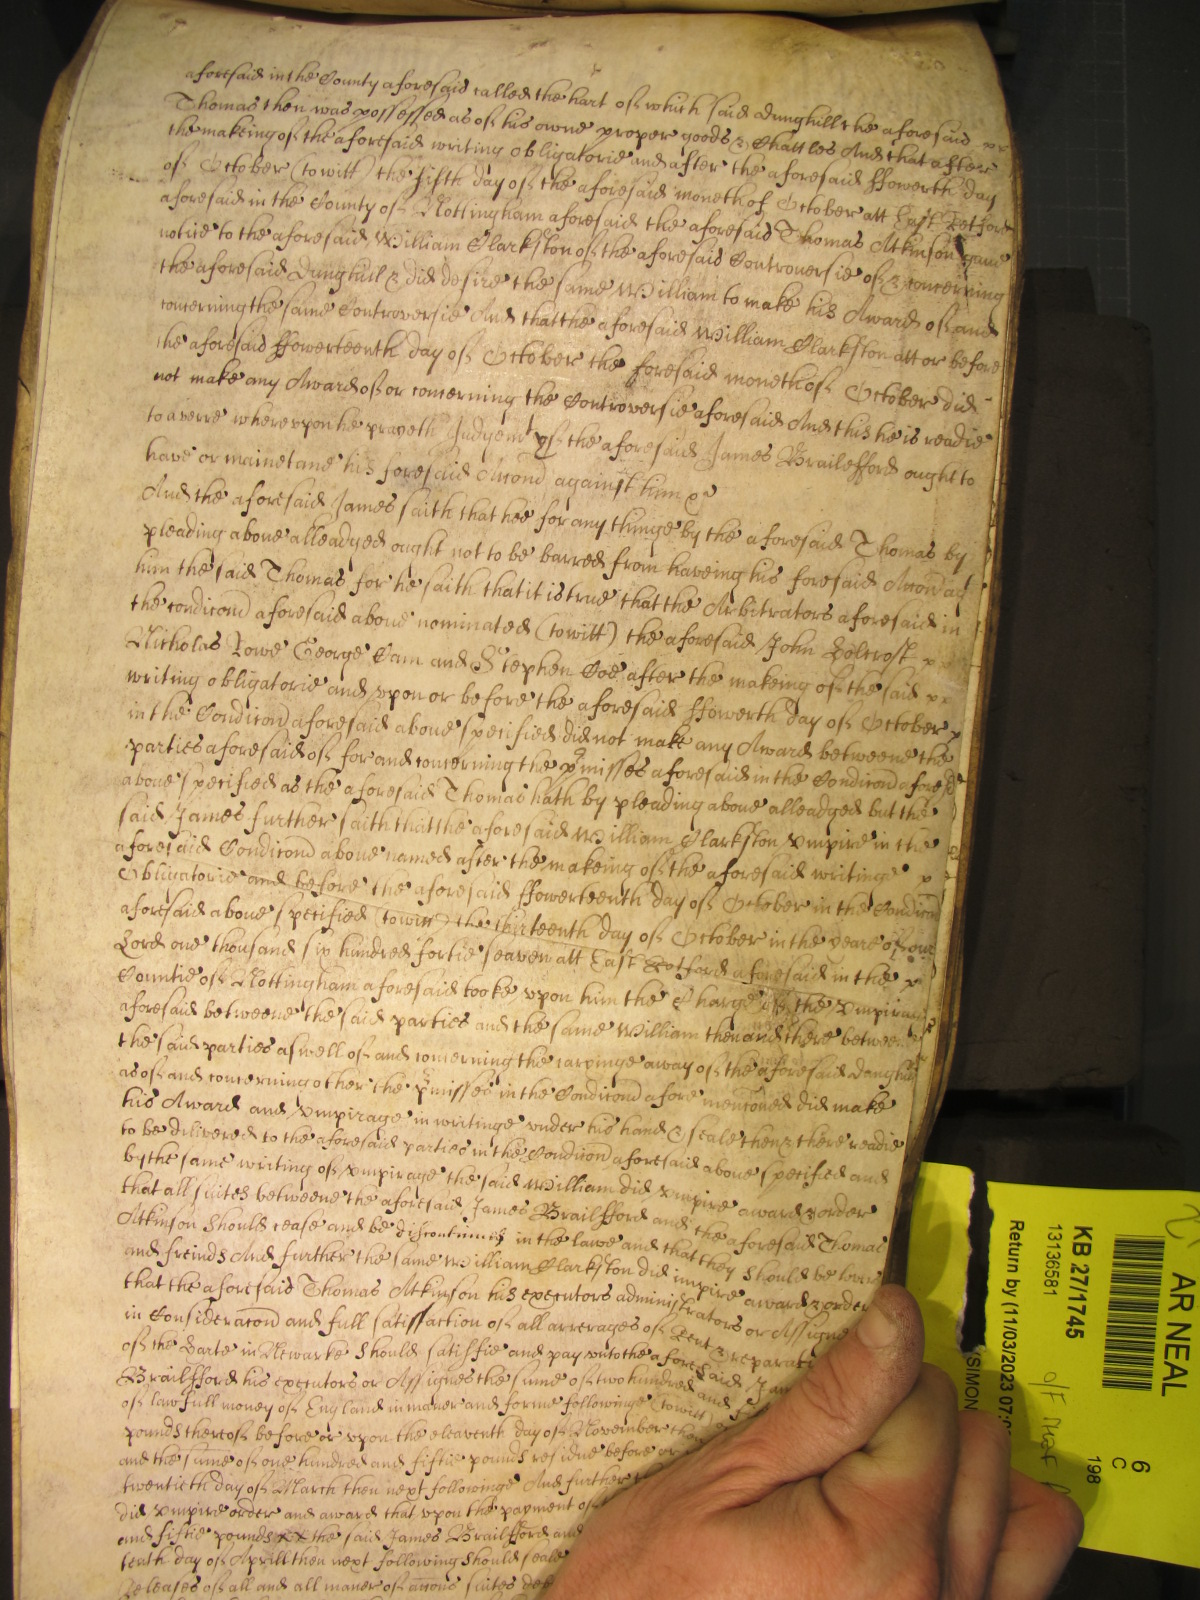 aforesaid in the County aforesaid called the hart of which said dunghill the aforesaid
Thomas then was possessed as of his owne proper goods & Chattles And that after
the makeing of the aforesaid writing obligatorie and after the aforesaid ffowerth day
of October (to witt) the fifth day of the aforesaid moneth of October att East Retford
aforesaid in the County of Nottingham aforesaid the aforesaid Thomas Atkinson gave
notice to the aforesaid William Clarkston of the aforesaid Controversie of & concerning
the aforesaid Dunghill & did desire the same William to make his Award of and
concerning the same Controversie And that the aforesaid William Clarkston att or before
the aforesaid ffowerteenth day of October the foresaid moneth of October did
not make any Award of or concerning the Controversie aforesaid And this he is readie
to averre whereupon he prayeth Judgemt yf the aforesaid James Brailefford ought to
have or mainetane his foresaid Accond against him &c
And the aforesaid James saith that hee for any thinge by the aforesaid Thomas by
pleading above alleadged ought not to be barred from haveing his foresaid Accond agt
him the said Thomas for he saith that it is true that the Arbitrators aforesaid in
the condicond aforesaid above nominated (to witt) the aforesaid John
Nicholas Lowe George Cam and Stephen Coe after the makeing of the said
writing obligatorie and upon or before the aforesaid ffowerth day of October
in the Condicond aforesaid above specified did not make any Award betweene the
parties aforesaid of for and concerning the pmisses aforesaid in the Condicond afores
above specified as the aforesaid Thomas hath by pleading above alleadged but the
said James further saith that the aforesaid William Clarkston Umpire in the
aforesaid Condicond above named after the makeing of the aforesaid writinge
Obligatorie and before the aforesaid ffowerteenth day of October in the Condicon
aforesaid above specified (to witt) the thirteenth day of October in the yeare of our
Lord one thousand six hundred fortie seaven att East Retford aforesaid in the
Countie of Nottingham aforesaid tooke upon him the Charge of the Umpirage
aforesaid betweene the said parties and the same William then and there betweene
the said parties aswell of and concerning the carryinge away of the aforesaid Dunghill
as of and concerning other the pmisses in the Condicond afore menconed did make
his Award and Umpirage in writinge under his hand & seale then & there readie
to be delivered to the aforesaid parties in the Condicond aforesaid above specified and
by the same writing of Umpirage the said William did Umpire award & order
that all suites betweene the aforesaid James Brailfford and the aforesaid Thomas
Atkinson should cease and be discontinued in the lawe and that they should be lovers
and freinds And further the same William Clarkston did impire award & order
that the aforesaid Thomas Atkinson his executors administrators or Assignes
in Consideracond and full satisfaction of all arrerages of Rent & reparati
of the in Newarke should satisfie and pay unto the aforesaid Jam
Brailfford his executors or Assignes the sume of two hundred and
of lawfull money of England in maner and forme followinge (to witt)
pounds thereof before or upon the eleaventh day of November
and the some of one hundred and fiftie pounds residue before or
twentieth day of March then next followinge And further
did Umpire order and award that upon the payment of
and fiftie pounds the said James Brailfford and
tenth day of Aprill then next following should seale
Releases of all and all maner of accons suites deb
AR NEAL
6
C
198
KB 27/1745
13136581
Return by (11/03/2023 07:0
(SIMON